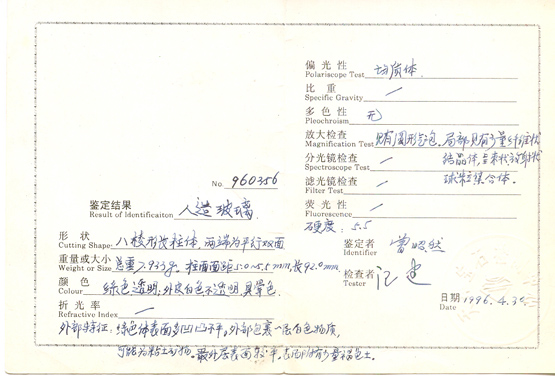 No. 960356
鉴定结果
Result of Identificaiton 人造玻璃
形状
Cutting Shape: 八棱形长柱体，两端为平行双面
重量或大小
Weight or Size 总重7.933g. 柱面面距5.0~5.5mm, 长92.0mm.
颜色
Colour 绿色透明，外皮白色不透明
折光率
Refractive Index —
外部特征：绿色体表面多凹凸不平，外部包裹一层白色物质，
可能为粘土矿物。最外层表面较平，
偏光性
Polariscope Test 均质体.
比重
Specific Gravity —
多色性
Pleochroism 无
放大检查
Magnification Test 见有圆形气包，局部见有少量纤维状
分光镜检查 结晶体，
Spectroscope Test —
滤光镜检查 球粒集合体.
Filter Test —
荧光性
Fluorescence —
硬度：5.5
鉴定者
Identifier
检查者
Tester
日期 1996.4.30.
Date